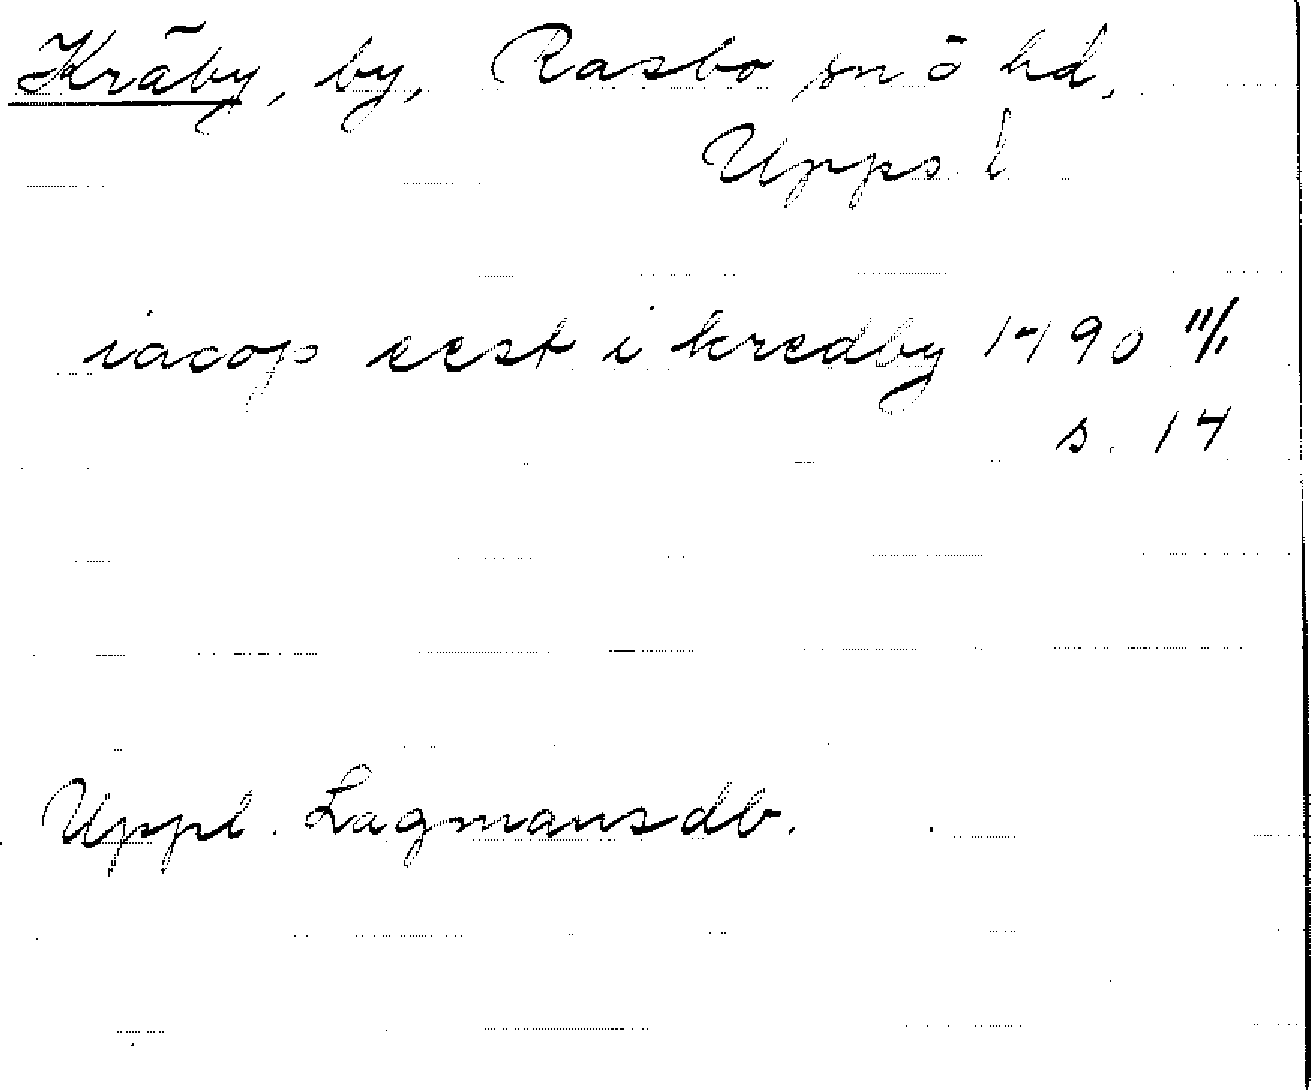 Kräby, by, Rasbo sn o hd,
Upps l
iacop eest i kredby 1490 11/1
s. 14
Uppl. Lagmansdb.